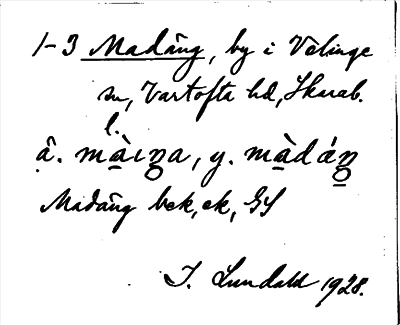 1-3 Madäng, by i Välinge
sn, Vartofta hd, Skarab.
l.
ä. màiŋa, y. màdáŋ
Madäng bek, ek, GS
I. Lundahl 1928.